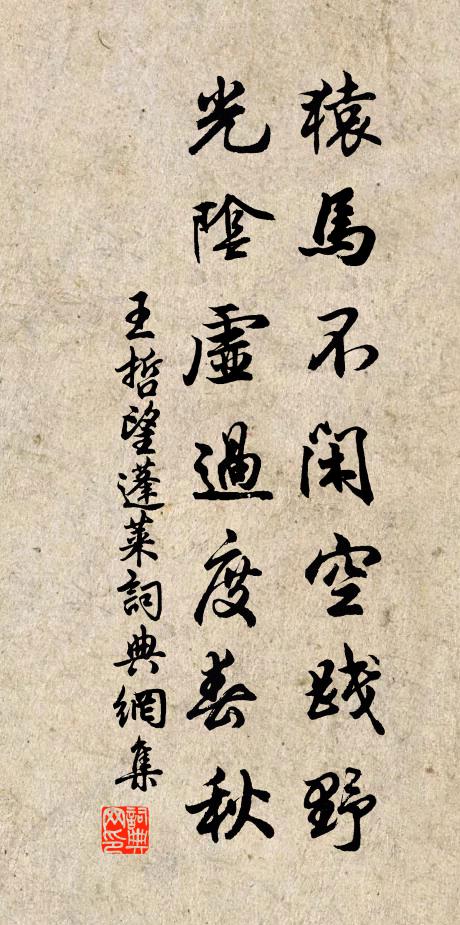 猿馬不閑空踐野
光陰虛過度春秋
王哲望蓬萊詞典網集
詞典网印